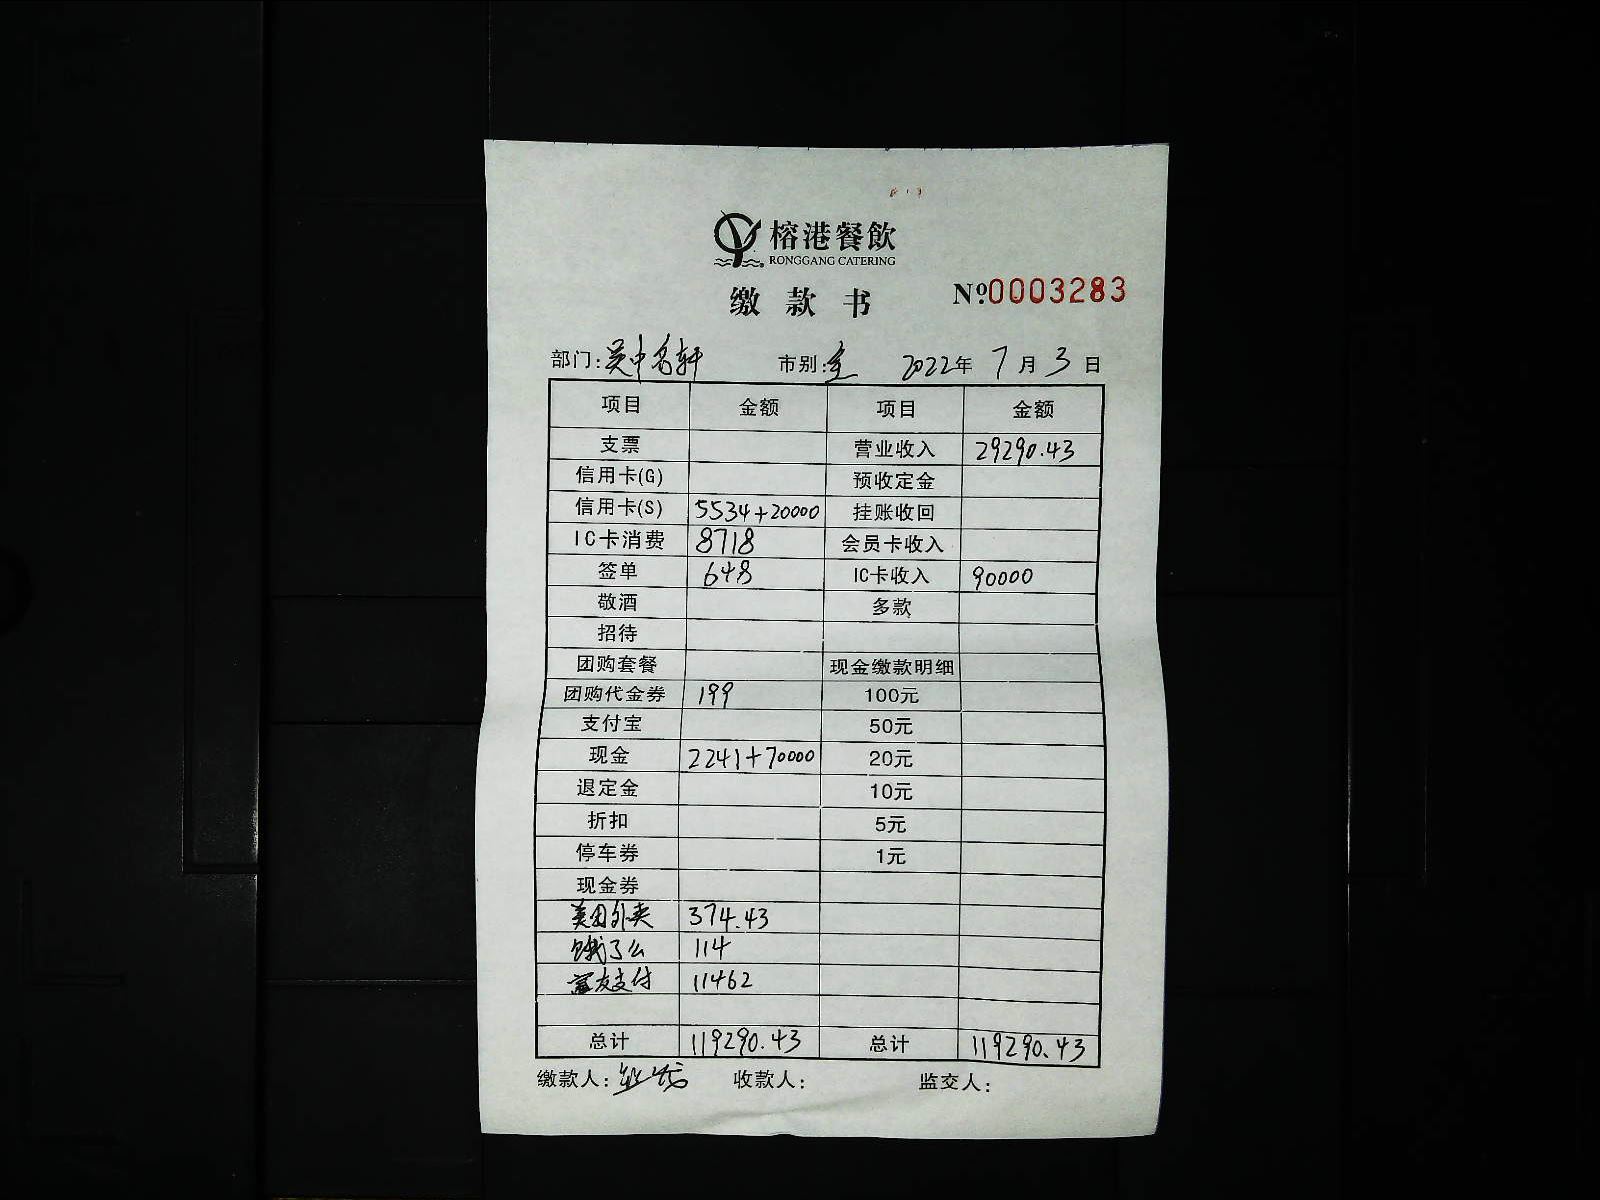 榕港餐飲
RONGGANG CATERING
缴款书 №0003283
部门:吴中名轩 市别:全 2022年 7月 3日
项目 金额 项目 金额
支票 营业收入 29290.43
信用卡(G) 预收定金
信用卡(S) 5534+20000 挂账收回
IC卡消费 8718 会员卡收入
签单 648 IC卡收入 90000
敬酒 多款
招待
团购套餐 现金缴款明细
团购代金券 199 100元
支付宝 50元
现金 2241+70000 20元
退定金 10元
折扣 5元
停车券 1元
现金券
美团外卖 374.43
饿了么 114
富友支付 11462
总计 119290.43 总计 119290.43
缴款人: 收款人: 监交人: